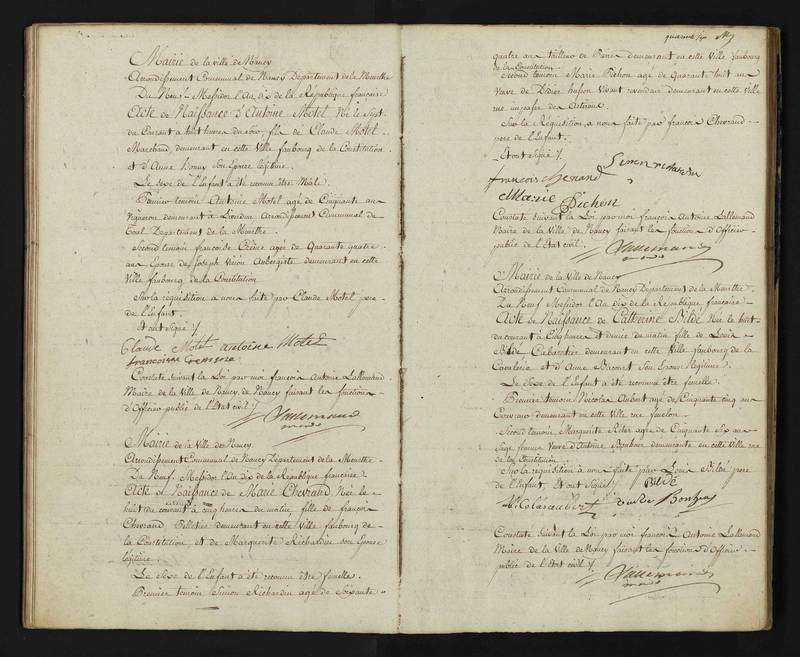 Mairie de la ville de Nancy
Arrondissement Communal de Nancy Département de la Meurthe
Du Neuf Messidor l'An dix de la République française
Acte de Naissance d'Antoine Motel Née le Sept
du Courant a huit heures du soir, fils de Claude Motel
Marchand demeurant en cette Ville faubourg de la Constitution
et d'Anne Son Epouse légitime.
Le Sexe de l'Enfant a été reconnu être Mâle.
Premier temoin Antoine Motel agé de Cinquante ans
Vigneron demeurant à Arrondissement Communal de
Toul Departement de la Meurthe.
Second temoin françoise agée de Quarante quatre
ans Epouse de Joseph Aubergiste demeurant en cette
Ville faubourg de la Constitution
Sur la réquisition a nous faite par Claude Motel pere
de l'Enfant.
Et ont Signé ./.
Claude Motel antoine Motel
francoisse
Constaté Suivant la Loi par moi françois Antoine Lallemand
Maire de la Ville de Nancy, de Nancy faisant les fonctions
d'Officier public de l'Etat civil ./.
Lallemand
Mairie de la Ville de Nancy.
Arrondissement Communal de Nancy Département de la Meurthe
Du Neuf Messidor l'An dix de la République française
Acte de Naissance de Marie Chevrand. Née le
huit du courant à cinq heures du matin, fille de françois
Chevrand Pelletier demeurant en cette Ville faubourg de
la Constitution et de Marguerite Richardin son Epouse
légitime.
Le Sexe de l'Enfant a été reconnu être femelle.
Premier temoin Simon Richardin agé de Soixante
quarante six
quatre ans tailleur de Pierre demeurant en cette Ville faubourg
de la Constitution
Second temoin Marie Pichon agée de Quarante huit ans
Veuve de Didier husson Vivant revendeur demeurant en cette Ville
rue impasse des Artisans
Sur la Réquisition, a nous faite par françois Chevrand
pere de l'Enfant.
Et ont Signé ./.
Simon
francois
Marie Pichon
Constaté Suivant la Loi par moi françois Antoine Lallemand
Maire de la Ville de Nancy faisant les fonctions d'Officier
public de l'Etat civil ./.
Lallemand
Mairie de la Ville de Nancy
Arrondissement Communal de Nancy Département de la Meurthe
Du Neuf Messidor l'An dix de la République française
Acte de Naissance de Catherine Bildé Née le huit
du courant à Cinq heures et demie du matin fille de Louis
Bildé Cabaretier demeurant en cette Ville faubourg de la
Constitution et d'Anne Son Epouse légitime.
Le Sexe de l'Enfant a été reconnu être femelle.
Premier temoin Nicolas Aubert agé de Cinquante cinq ans
demeurant en cette Ville rue
Second temoin Marguerite agée de Cinquante Six ans
Sage femme Veuve d'Antoine demeurante en cette Ville rue
de la Constitution
Sur la réquisition à nous faite par Louis Bildé pere
de l'Enfant Et ont Signé ./. Bildé
Nicolas aubert
Constaté Suivant la Loi par moi françois Antoine Lallemand
Maire de la Ville de Nancy faisant les fonctions d'Officier
public de l'Etat civil ./.
Lallemand